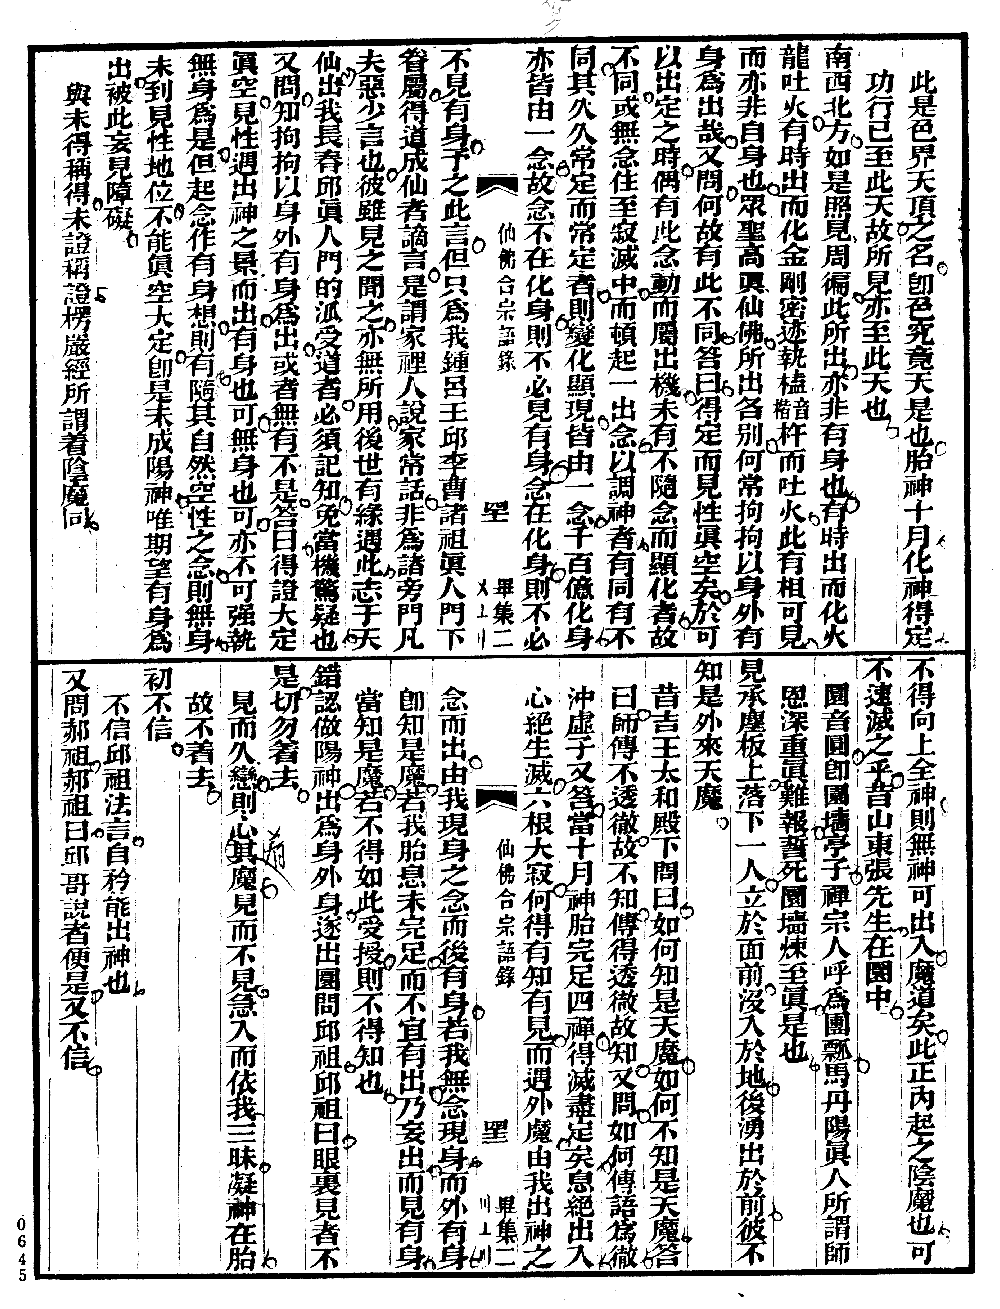 此是色界天頂之名卽色究竟天是也胎神十月化神得定
功行已至此天故所見亦至此天也
南西北方如是照見周徧此所出亦非有身也有時出而化火
龍吐火有時出而化金剛密迹執𣞙音楷杵而吐火此有相可見
而亦非自身也眾聖高眞仙佛所出各別何常拘拘以身外有
身爲出哉又問何故有此不同答曰得定而見性眞空矣於可
以出定之時偶有此念動而屬出機未有不隨念而顯化者故
不同或無念住至寂滅中而頓起一出念以調神者有同有不
同其久久常定而常定者則變化顯現皆由一念千百億化身
亦皆由一念故念不在化身則不必見有身念在化身則不必
仙佛合宗語錄
畢集二
不見有身予之此言但只爲我鍾呂王邱李曹諸祖眞人門下
眷屬得道成仙者謫言是謂家裡人說家常話非爲諸旁門凡
夫惡少言也彼雖見之聞之亦無所用後世有緣遇此志于天
仙出我長春邱眞人門的派受道者必須記知免當機驚疑也
又問知拘拘以身外有身爲出或者無有不是答曰得證大定
眞空見性遇出神之景而出有身也可無身也可亦不可强執
無身爲是但起念作有身想則有隨其自然空性之念則無身
未到見性地位不能眞空大定卽是未成陽神唯期望有身爲
出被此妄見障礙
與未得稱得未證稱證楞嚴經所謂着陰魔同
不得向上全神則無神可出入魔道矣此正內起之陰魔也可
不速滅之乎昔山東張先生在圜中
圜音圓卽圜墻亭子禪宗人呼爲團瓢馬丹陽眞人所謂師
恩深重眞難報誓死圜墻煉至眞是也
見承塵板上落下一人立於面前沒入於地後湧出於前彼不
知是外來天魔
昔吉王太和殿下問曰如何知是天魔如何不知是天魔答
曰師傳不透徹故不知傳得透徹故知又問如何傳語爲徹
沖虛子又答當十月神胎完足四禪得滅盡定矣息絕出入
心絕生滅六根大寂何得有知有見而遇外魔由我出神之
仙佛合宗語錄
畢集二
念而出由我現身之念而後有身若我無念現身而外有身
卽知是魔若我胎息未完足而不宜有出乃妄出而見有身
當知是魔若不得如此受授則不得知也
錯認做陽神出爲身外身遂出圜問邱祖邱祖曰眼裏見者不
是切勿着去
見而久戀則心其魔見而不見急入而依我三昧凝神在胎
故不着去
初不信
不信邱祖法言自矜能出神也
又問郝祖郝祖曰邱哥說者便是又不信
0645